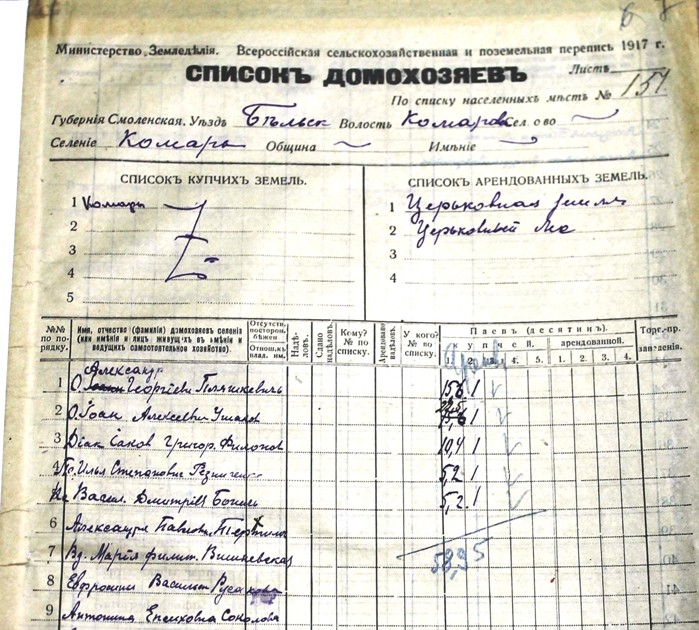 6
Министерство Земледѣлія. Всероссійская сельскохозяйственная и поземельная перепись 1917 г.
СПИСОКЪ ДОМОХОЗЯЕВЪ
Листъ
По списку населенныхъ мѣстъ № 151
Губернія Смоленская. Уѣздъ Бѣльск Волость Комаров Сел. о во
Селеніе Комары Община Имѣніе
СПИСОКЪ КУПЧИХЪ ЗЕМЕЛЬ.
1 Комары
2
3
4
5
СПИСОКЪ АРЕНДОВАННЫХЪ ЗЕМЕЛЬ.
1 Церьковная земля
2 Церьковный
3
4
№№ по порядку.
Имя, отчество (фамилія) домохозяевъ селенія (или имѣнія и лицъ живущ-хъ въ имѣніи и ведущихъ самостоятельное хозяйство).
Отсутств. посторон. бѣжен.
Отнош. къ влад. им.
Надѣловъ.
Сдано надѣловъ.
Кому? № по списку.
Арендовано надѣловъ.
У кого? № по списку.
Паевъ (десятинъ).
купчей.
1. 2. 3. 4. 5.
арендованной.
1. 2. 3. 4.
Торг.-пр. заведенія.
Александр
1 О. Георгіевъ 15,6 1
2 О. Іоан Алексѣевич Ушаков 15,6 1
3 Діак Іаков Григор. Филонов 10,4 1
4 Пс. Илья Степановичъ 5,2 1
Пс Васил. Дмитрів 5,2 1
6 Александра Павловна
58,95
7 Вд. Марія филип. Вишневская
8 Евфросинья Васильи Русакова
9 Антонина Соколова